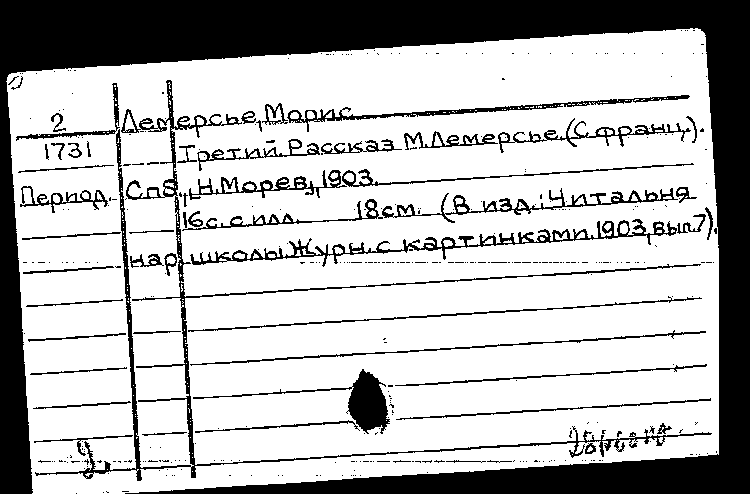 2 Лемерсье, Морис
1731 Третий. Рассказ М.Лемерсье. (С франц.).
Период. Спб., Н.Морев, 1903.
16с. с илл. 18см. (В изд.: Читальня
нар. школы. Журн. с картинками. 1903, вып.7).
2.